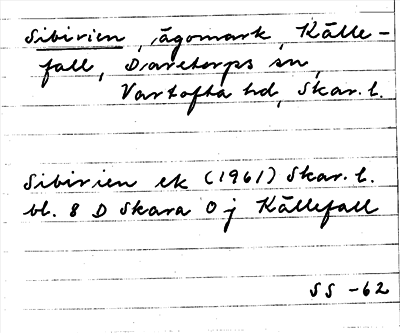 Sibirien, ägomark, Källe-
fall, Daretorps sn,
Vartofta hd, Skar. l.
Sibirien ek (1961) Skar. l.
bl. 8 D Skara 0 j Källefall
SS -62